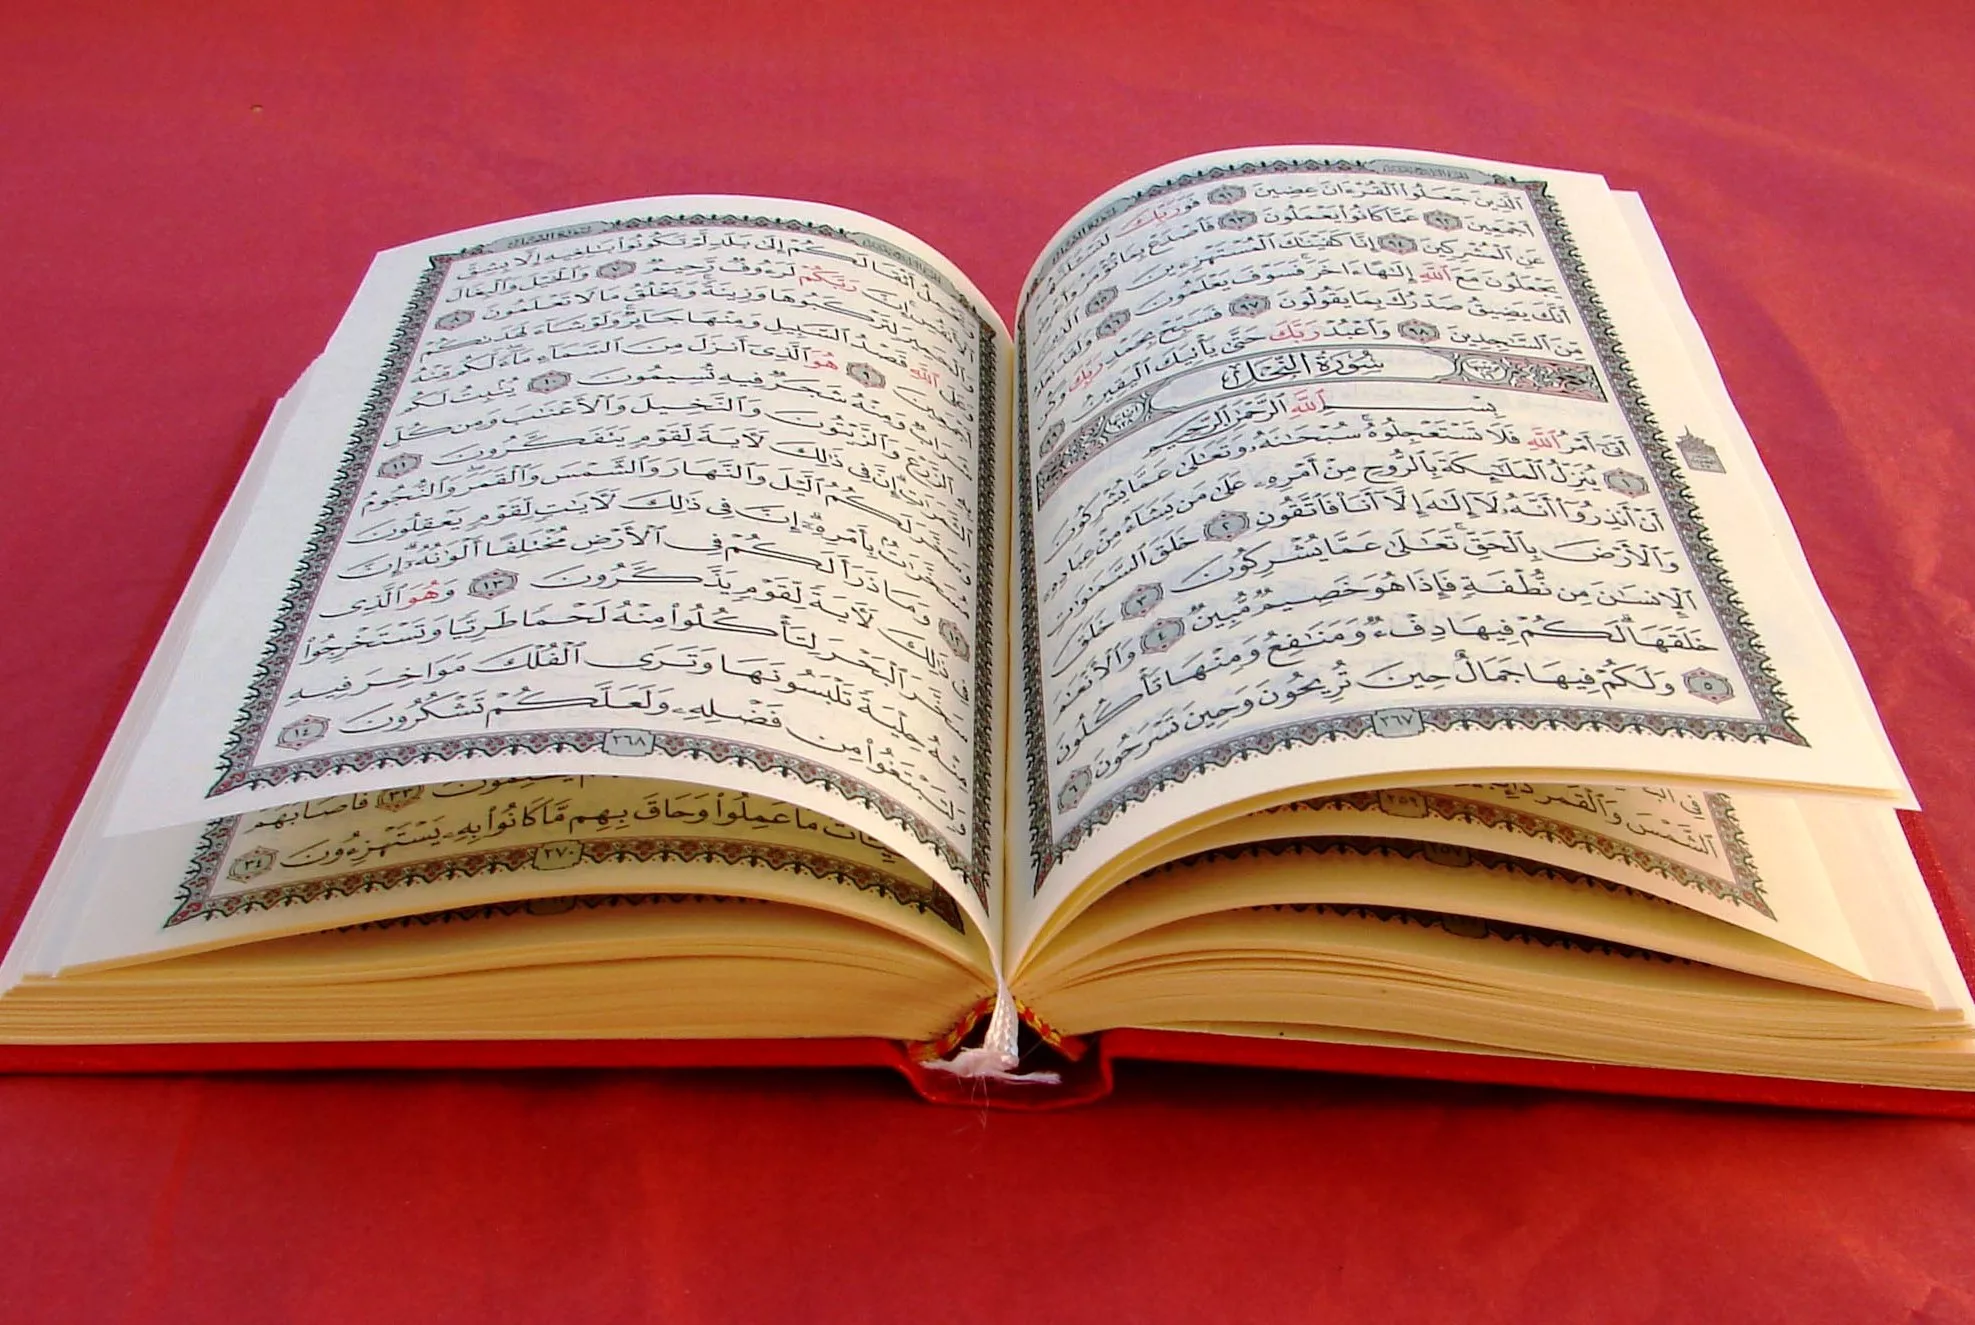 ٱلَّذِينَ جَعَلُوا۟ ٱلْقُرْءَانَ عِضِينَ ٩١ فَوَرَبِّكَ
أَجْمَعِينَ ٩٢ عَمَّا كَانُوا۟ يَعْمَلُونَ ٩٣ فَٱصْدَعْ بِمَا تُؤْمَرُ وَأَعْرِضْ
عَنِ ٱلْمُشْرِكِينَ ٩٤ إِنَّا كَفَيْنَٰكَ ٱلْمُسْتَهْزِءِينَ ٩٥ ٱلَّذِينَ
يَجْعَلُونَ مَعَ ٱللَّهِ إِلَٰهًا ءَاخَرَ فَسَوْفَ يَعْلَمُونَ ٩٦ وَلَقَدْ نَعْلَمُ
أَنَّكَ يَضِيقُ صَدْرُكَ بِمَا يَقُولُونَ ٩٧ فَسَبِّحْ بِحَمْدِ رَبِّكَ وَكُن
مِّنَ ٱلسَّٰجِدِينَ ٩٨ وَٱعْبُدْ رَبَّكَ حَتَّىٰ يَأْتِيَكَ ٱلْيَقِينُ ٩٩
سُورَةُ النَّحْلِ
بِسْمِ ٱللَّهِ ٱلرَّحْمَٰنِ ٱلرَّحِيمِ
أَتَىٰٓ أَمْرُ ٱللَّهِ فَلَا تَسْتَعْجِلُوهُ سُبْحَٰنَهُۥ وَتَعَٰلَىٰ عَمَّا يُشْرِكُونَ
١ يُنَزِّلُ ٱلْمَلَٰٓئِكَةَ بِٱلرُّوحِ مِنْ أَمْرِهِۦ عَلَىٰ مَن يَشَآءُ مِنْ عِبَادِهِۦٓ
أَنْ أَنذِرُوٓا۟ أَنَّهُۥ لَآ إِلَٰهَ إِلَّآ أَنَا۠ فَٱتَّقُونِ ٢ خَلَقَ ٱلسَّمَٰوَٰتِ
وَٱلْأَرْضَ بِٱلْحَقِّ تَعَٰلَىٰ عَمَّا يُشْرِكُونَ ٣ خَلَقَ
ٱلْإِنسَٰنَ مِن نُّطْفَةٍ فَإِذَا هُوَ خَصِيمٌ مُّبِينٌ ٤ وَٱلْأَنْعَٰمَ
خَلَقَهَا لَكُمْ فِيهَا دِفْءٌ وَمَنَٰفِعُ وَمِنْهَا تَأْكُلُونَ
٥ وَلَكُمْ فِيهَا جَمَالٌ حِينَ تُرِيحُونَ وَحِينَ تَسْرَحُونَ ٦
٢٦٧
وَتَحْمِلُ أَثْقَالَكُمْ إِلَىٰ بَلَدٍ لَّمْ تَكُونُوا۟ بَٰلِغِيهِ إِلَّا بِشِقِّ
ٱلْأَنفُسِ إِنَّ رَبَّكُمْ لَرَءُوفٌ رَّحِيمٌ ٧ وَٱلْخَيْلَ وَٱلْبِغَالَ
وَٱلْحَمِيرَ لِتَرْكَبُوهَا وَزِينَةً وَيَخْلُقُ مَا لَا تَعْلَمُونَ ٨
وَعَلَى ٱللَّهِ قَصْدُ ٱلسَّبِيلِ وَمِنْهَا جَآئِرٌ وَلَوْ شَآءَ لَهَدَىٰكُمْ
أَجْمَعِينَ ٩ هُوَ ٱلَّذِىٓ أَنزَلَ مِنَ ٱلسَّمَآءِ مَآءً لَّكُم مِّنْهُ
شَرَابٌ وَمِنْهُ شَجَرٌ فِيهِ تُسِيمُونَ ١٠ يُنۢبِتُ لَكُم
بِهِ ٱلزَّرْعَ وَٱلزَّيْتُونَ وَٱلنَّخِيلَ وَٱلْأَعْنَٰبَ وَمِن كُلِّ
ٱلثَّمَرَٰتِ إِنَّ فِى ذَٰلِكَ لَءَايَةً لِّقَوْمٍ يَتَفَكَّرُونَ ١١
وَسَخَّرَ لَكُمُ ٱلَّيْلَ وَٱلنَّهَارَ وَٱلشَّمْسَ وَٱلْقَمَرَ وَٱلنُّجُومُ
مُسَخَّرَٰتٌۢ بِأَمْرِهِۦٓ إِنَّ فِى ذَٰلِكَ لَءَايَٰتٍ لِّقَوْمٍ يَعْقِلُونَ
١٢ وَمَا ذَرَأَ لَكُمْ فِى ٱلْأَرْضِ مُخْتَلِفًا أَلْوَٰنُهُۥٓ إِنَّ
فِى ذَٰلِكَ لَءَايَةً لِّقَوْمٍ يَذَّكَّرُونَ ١٣ وَهُوَ ٱلَّذِى
سَخَّرَ ٱلْبَحْرَ لِتَأْكُلُوا۟ مِنْهُ لَحْمًا طَرِيًّا وَتَسْتَخْرِجُوا۟
مِنْهُ حِلْيَةً تَلْبَسُونَهَا وَتَرَى ٱلْفُلْكَ مَوَاخِرَ فِيهِ
وَلِتَبْتَغُوا۟ مِن فَضْلِهِۦ وَلَعَلَّكُمْ تَشْكُرُونَ ١٤
٢٦٨
٣٣ فَأَصَابَهُمْ
مَا عَمِلُوا۟ وَحَاقَ بِهِم مَّا كَانُوا۟ بِهِۦ يَسْتَهْزِءُونَ ٣٤
٢٧٠
ٱلشَّمْسَ وَٱلْقَمَرَ